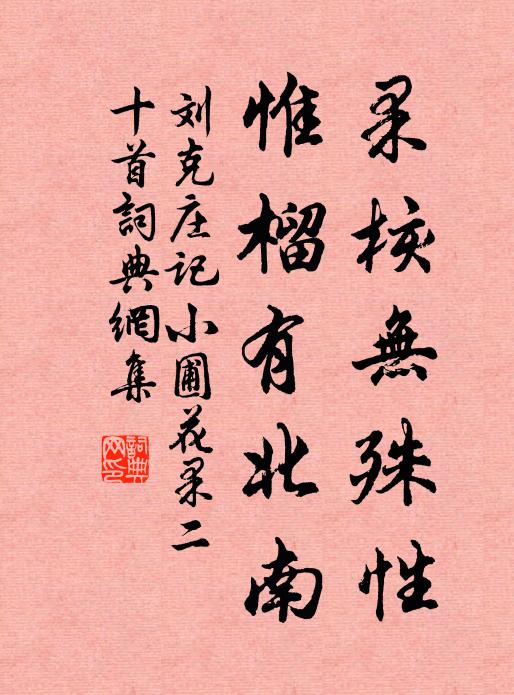 果核無殊性
惟榴有北南
刘克庄记小圃花果二
十首詞典網集
詞典
网印